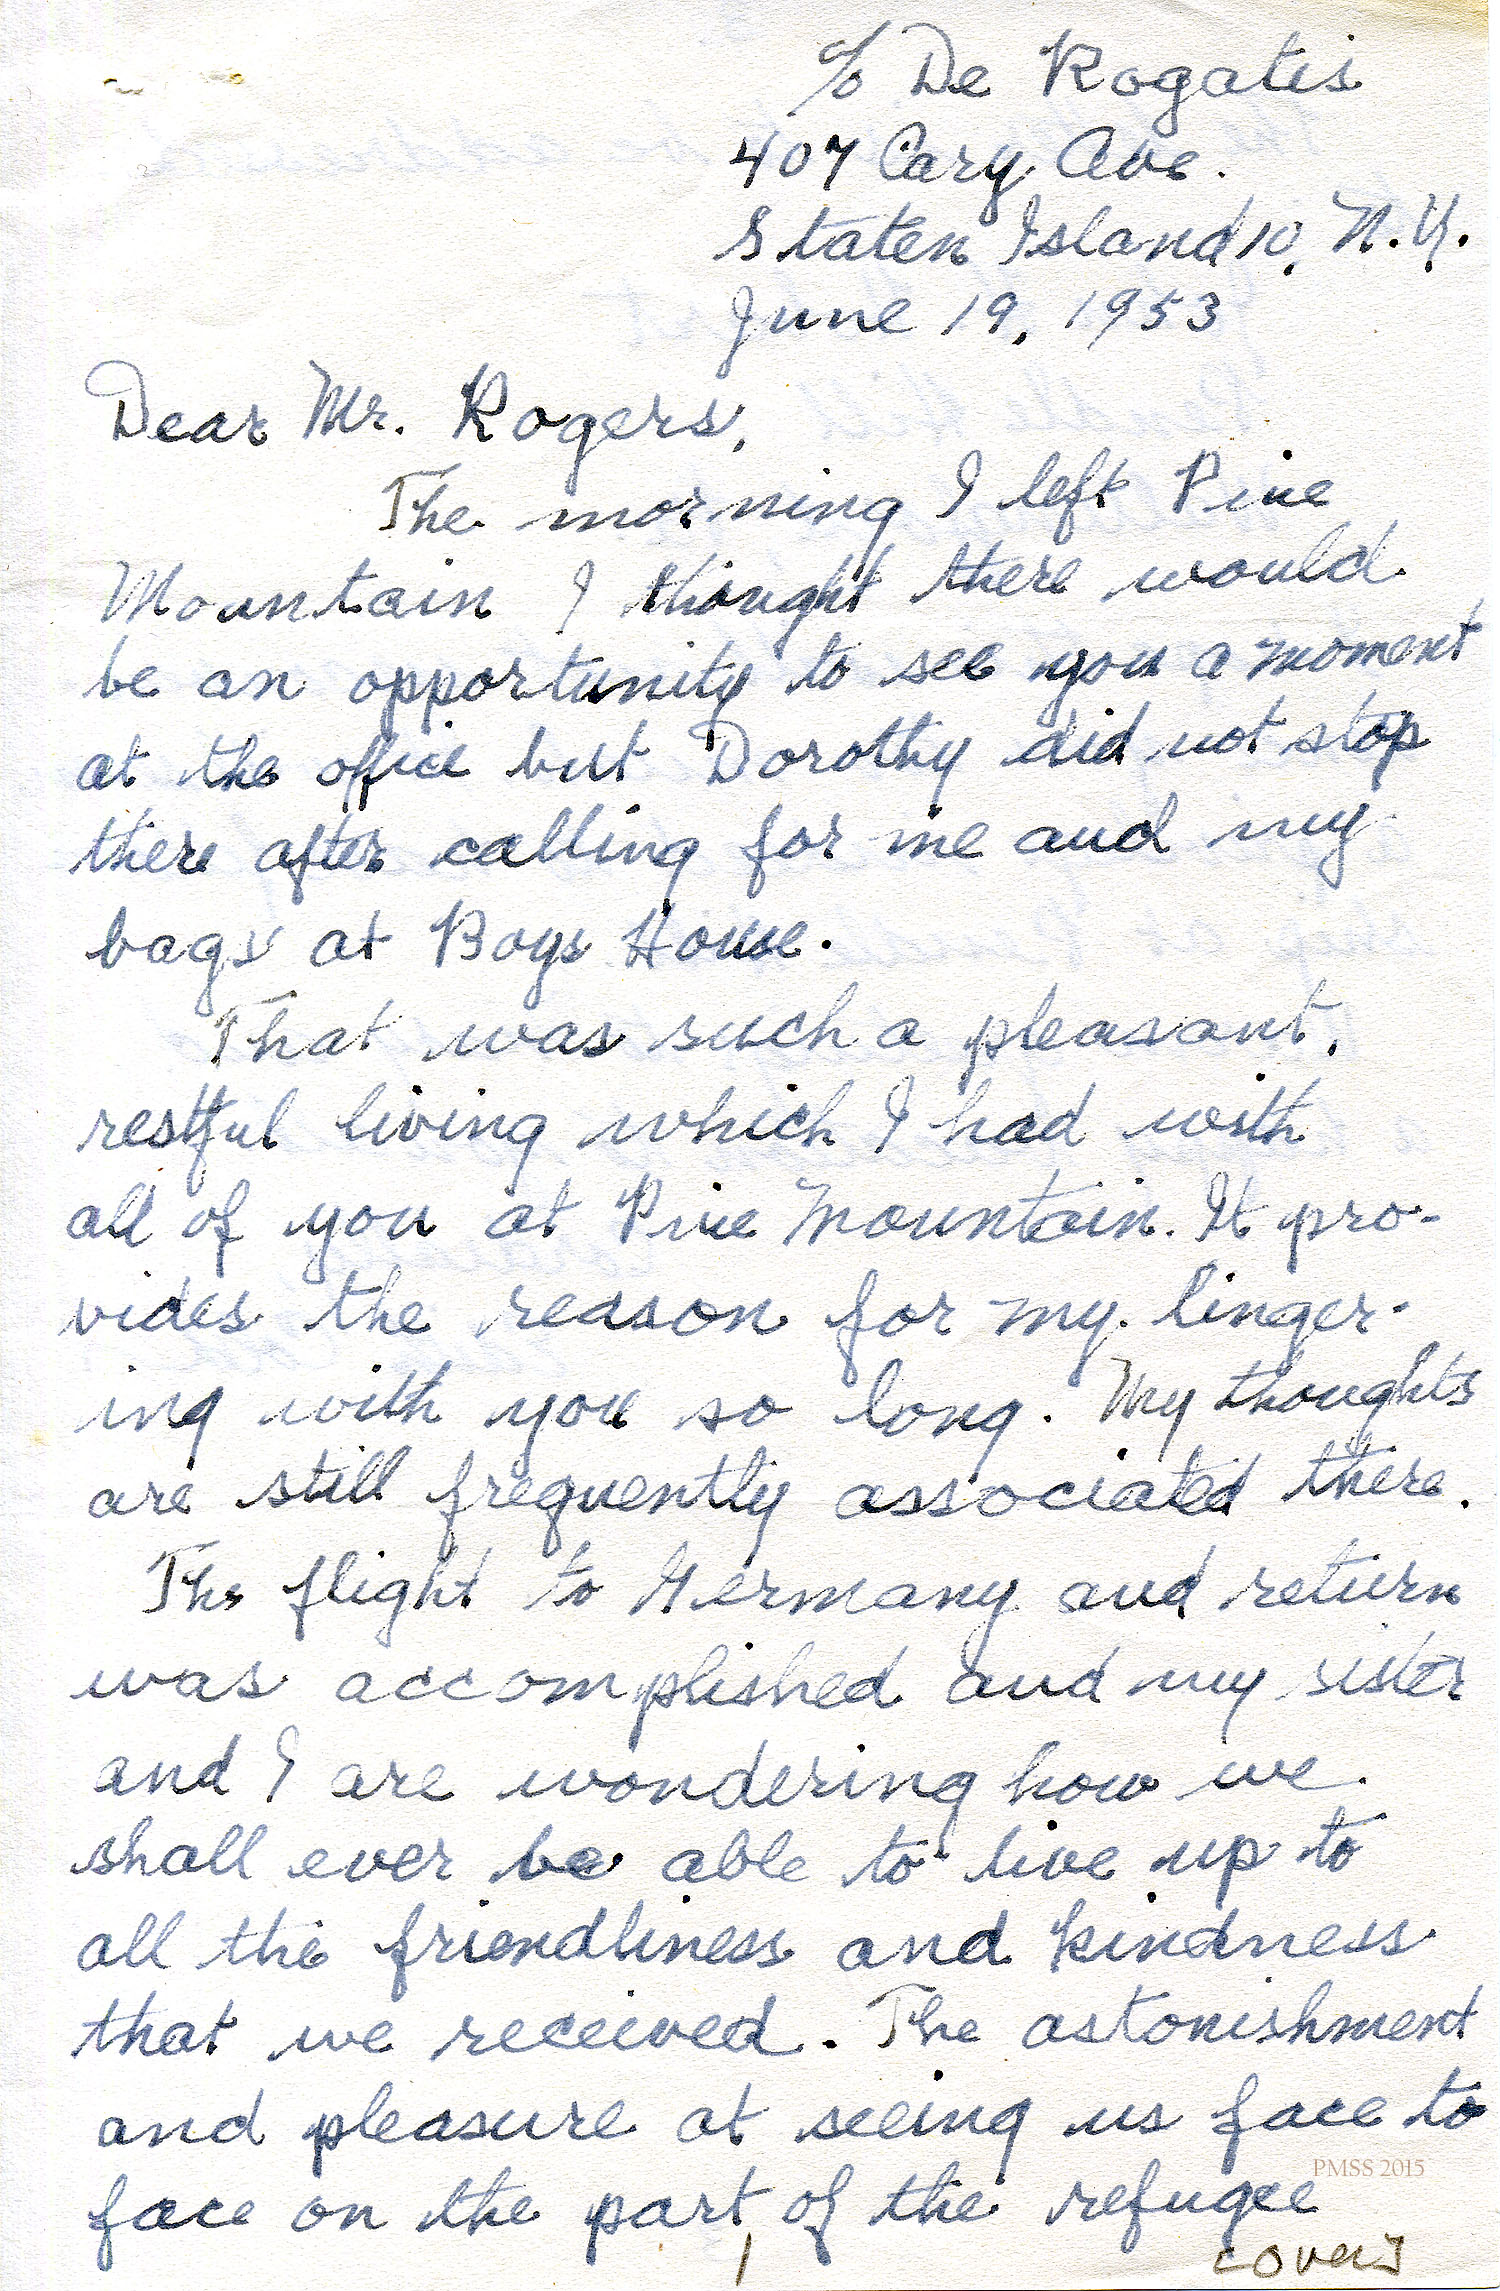 c/o De Rogatis
407 Cary Ave.
Staten Island 10, N.Y.
June 19, 1953
Dear Mr. Rogers,
The morning I left Pine
Mountain I thought there would
be an opportunity to see you a moment
at the office but Dorothy did not stop
there after calling for me and my
bags at Boys House.
That was such a pleasant,
restful living which I had with
all of you at Pine Mountain. It pro-
vides the reason for my linger-
ing with you so long. My thoughts
are still frequently associated there.
The flight to Germany and return
was accomplished and my sister
and I are wondering how we
shall ever be able to live up to
all the friendliness and kindness
that we received. The astonishment
and pleasure at seeing us face to
face on the part, of the refugee
PMSS 2015
[over]